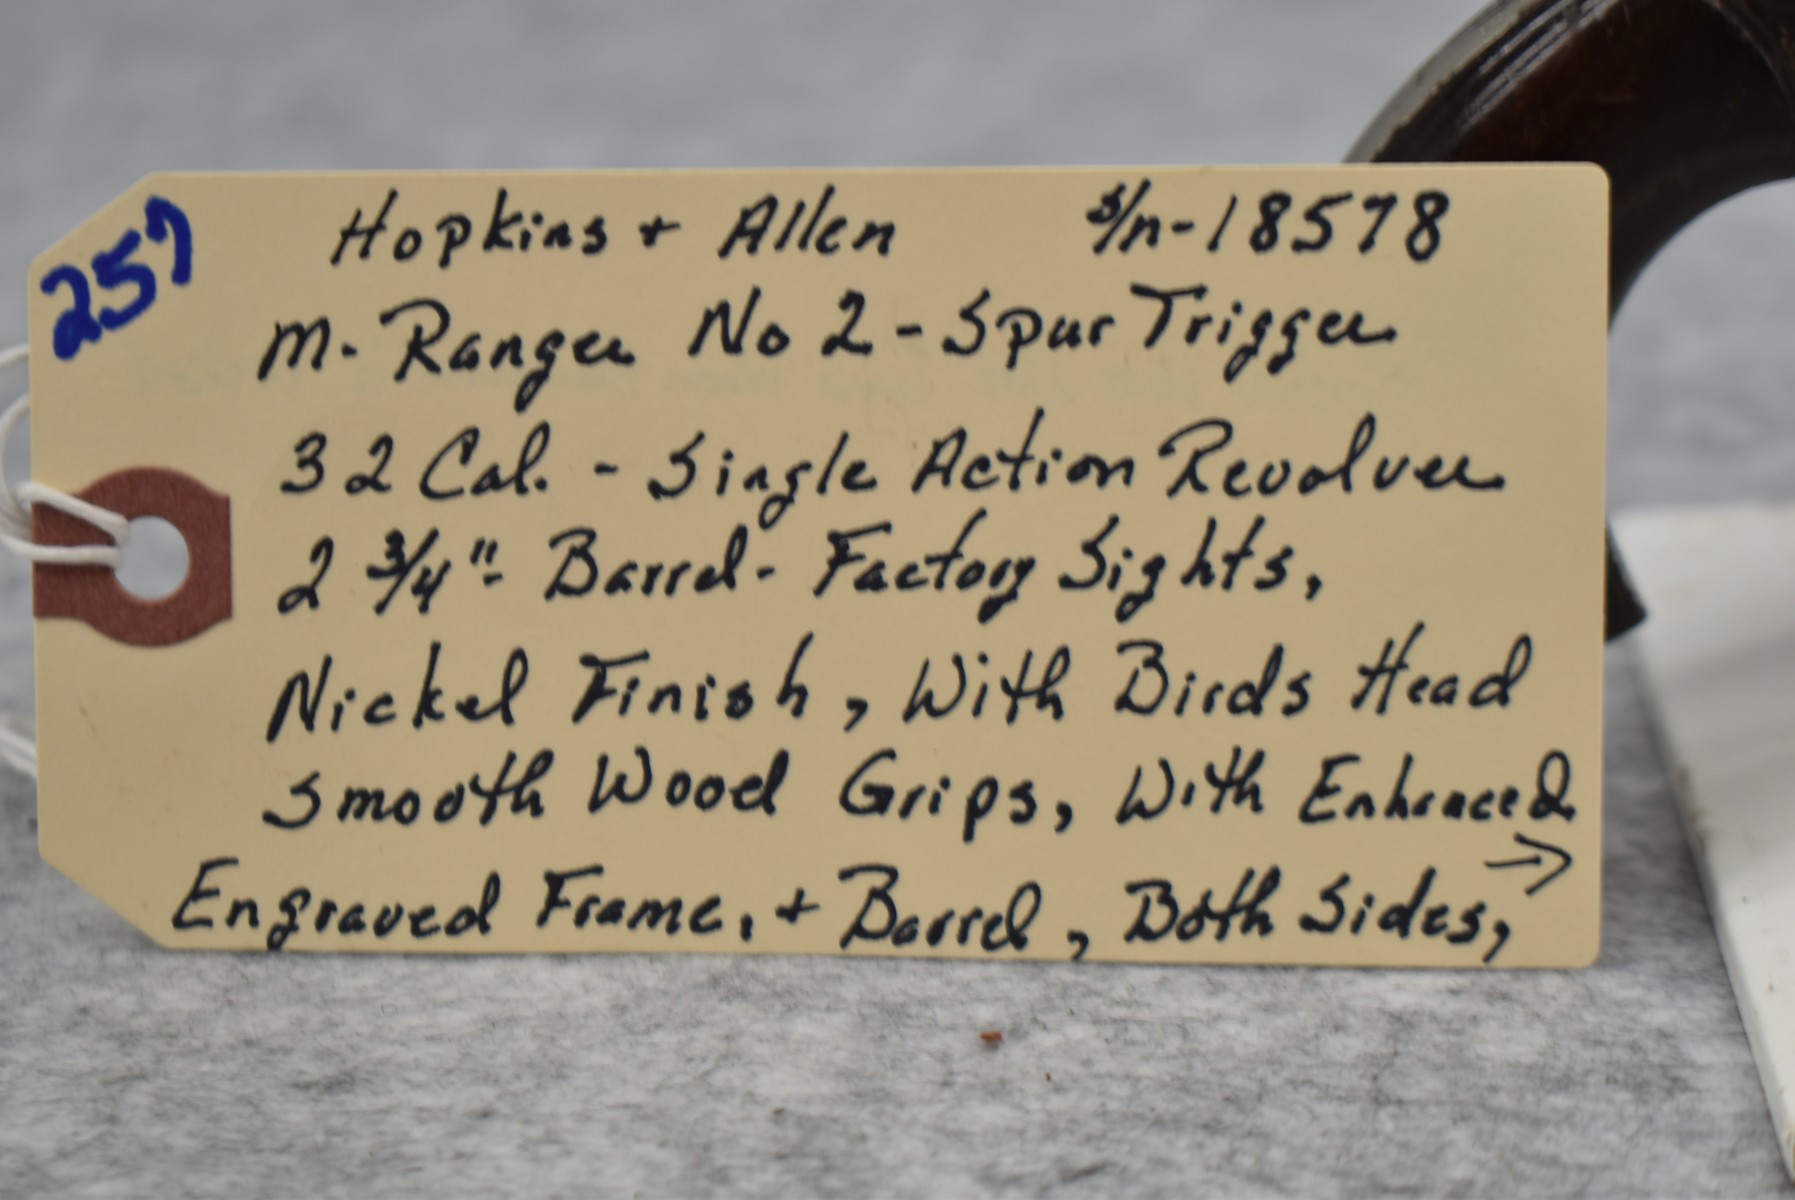 257
Hopkins + Allen s/n-18578
M. Ranger No 2 - Spur Trigger
32 Cal. - Single Action Revolver
2 3/4"- Barrel - Factory Sights,
Nickel Finish, With Birds Head
Smooth Wood Grips, With Enhanced
→
Engraved Frame, + Barrel, Both Sides,